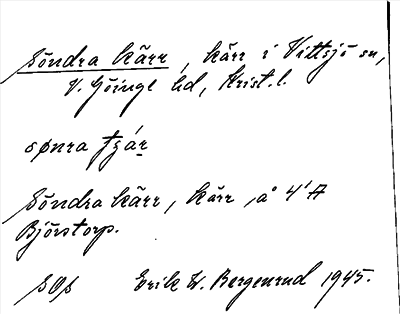 Söndra kärr, kärr i Vittsjö sn,
V. Göinge hd, Krist. l.
sønra tʒár
Söndra kärr, kärr, å 4'A
Björstorp.
SOs Erik W. Bergenrud 1945.